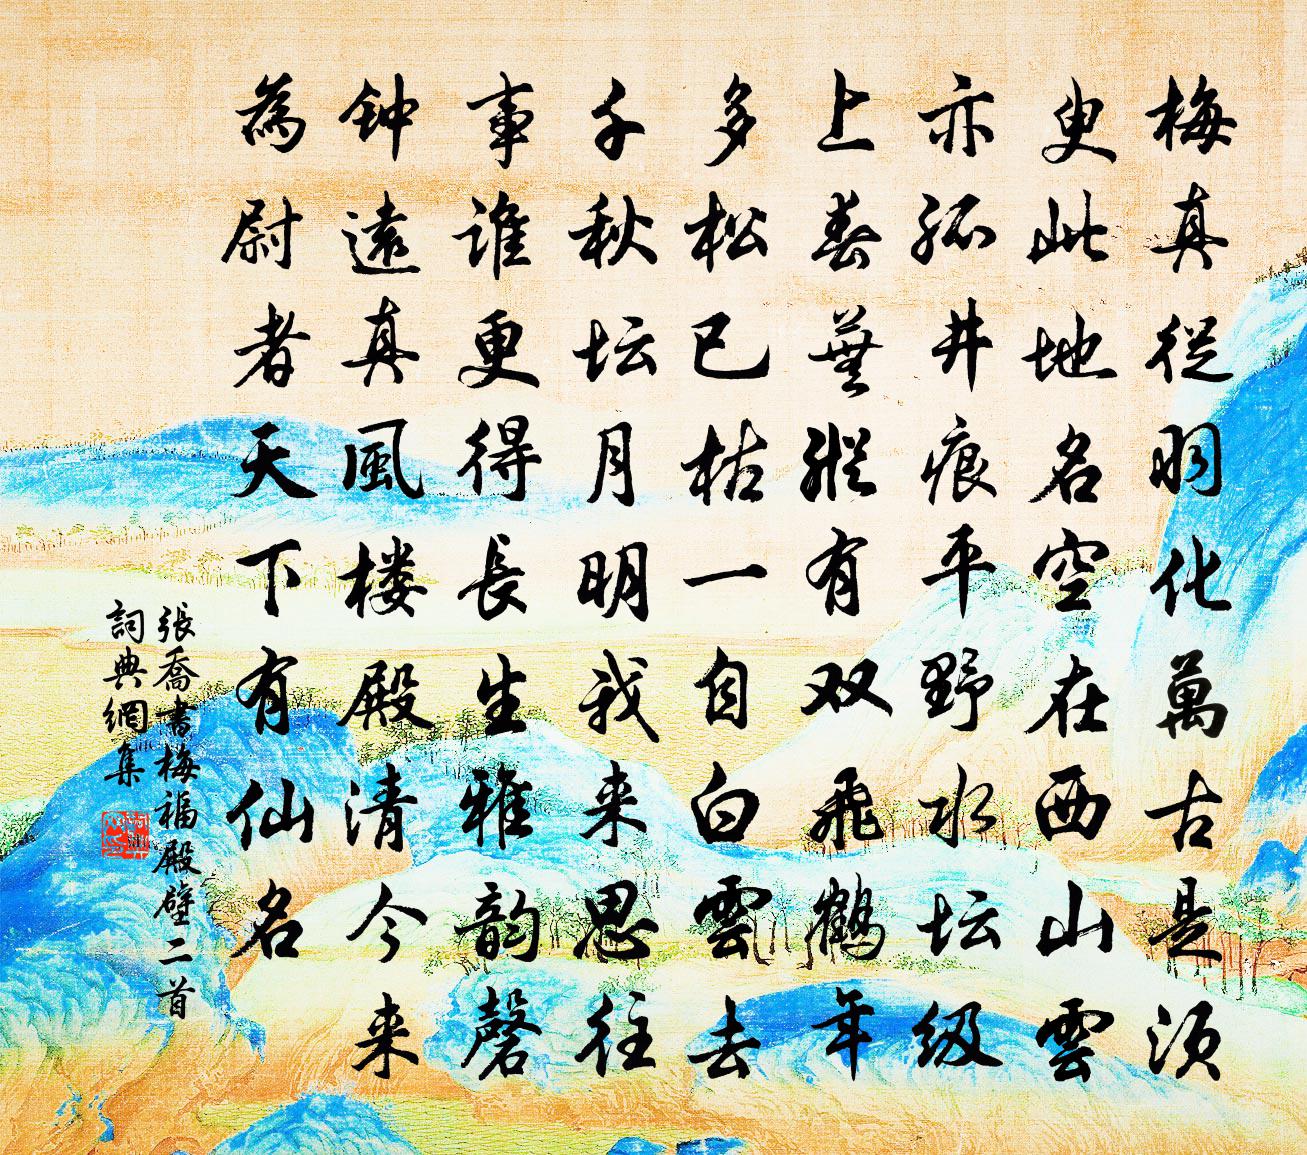 梅真從羽化萬古是須
叟此地名空在西山雲
亦孤井痕平野水坛级
上春蕪縱有双飛鶴年
多松已枯一自白雲去
千秋坛月明我来思往
事誰更得長生雅韵磬
钟遠真風楼殿清今来
為尉者天下有仙名
張喬書梅福殿壁二首
詞典網集